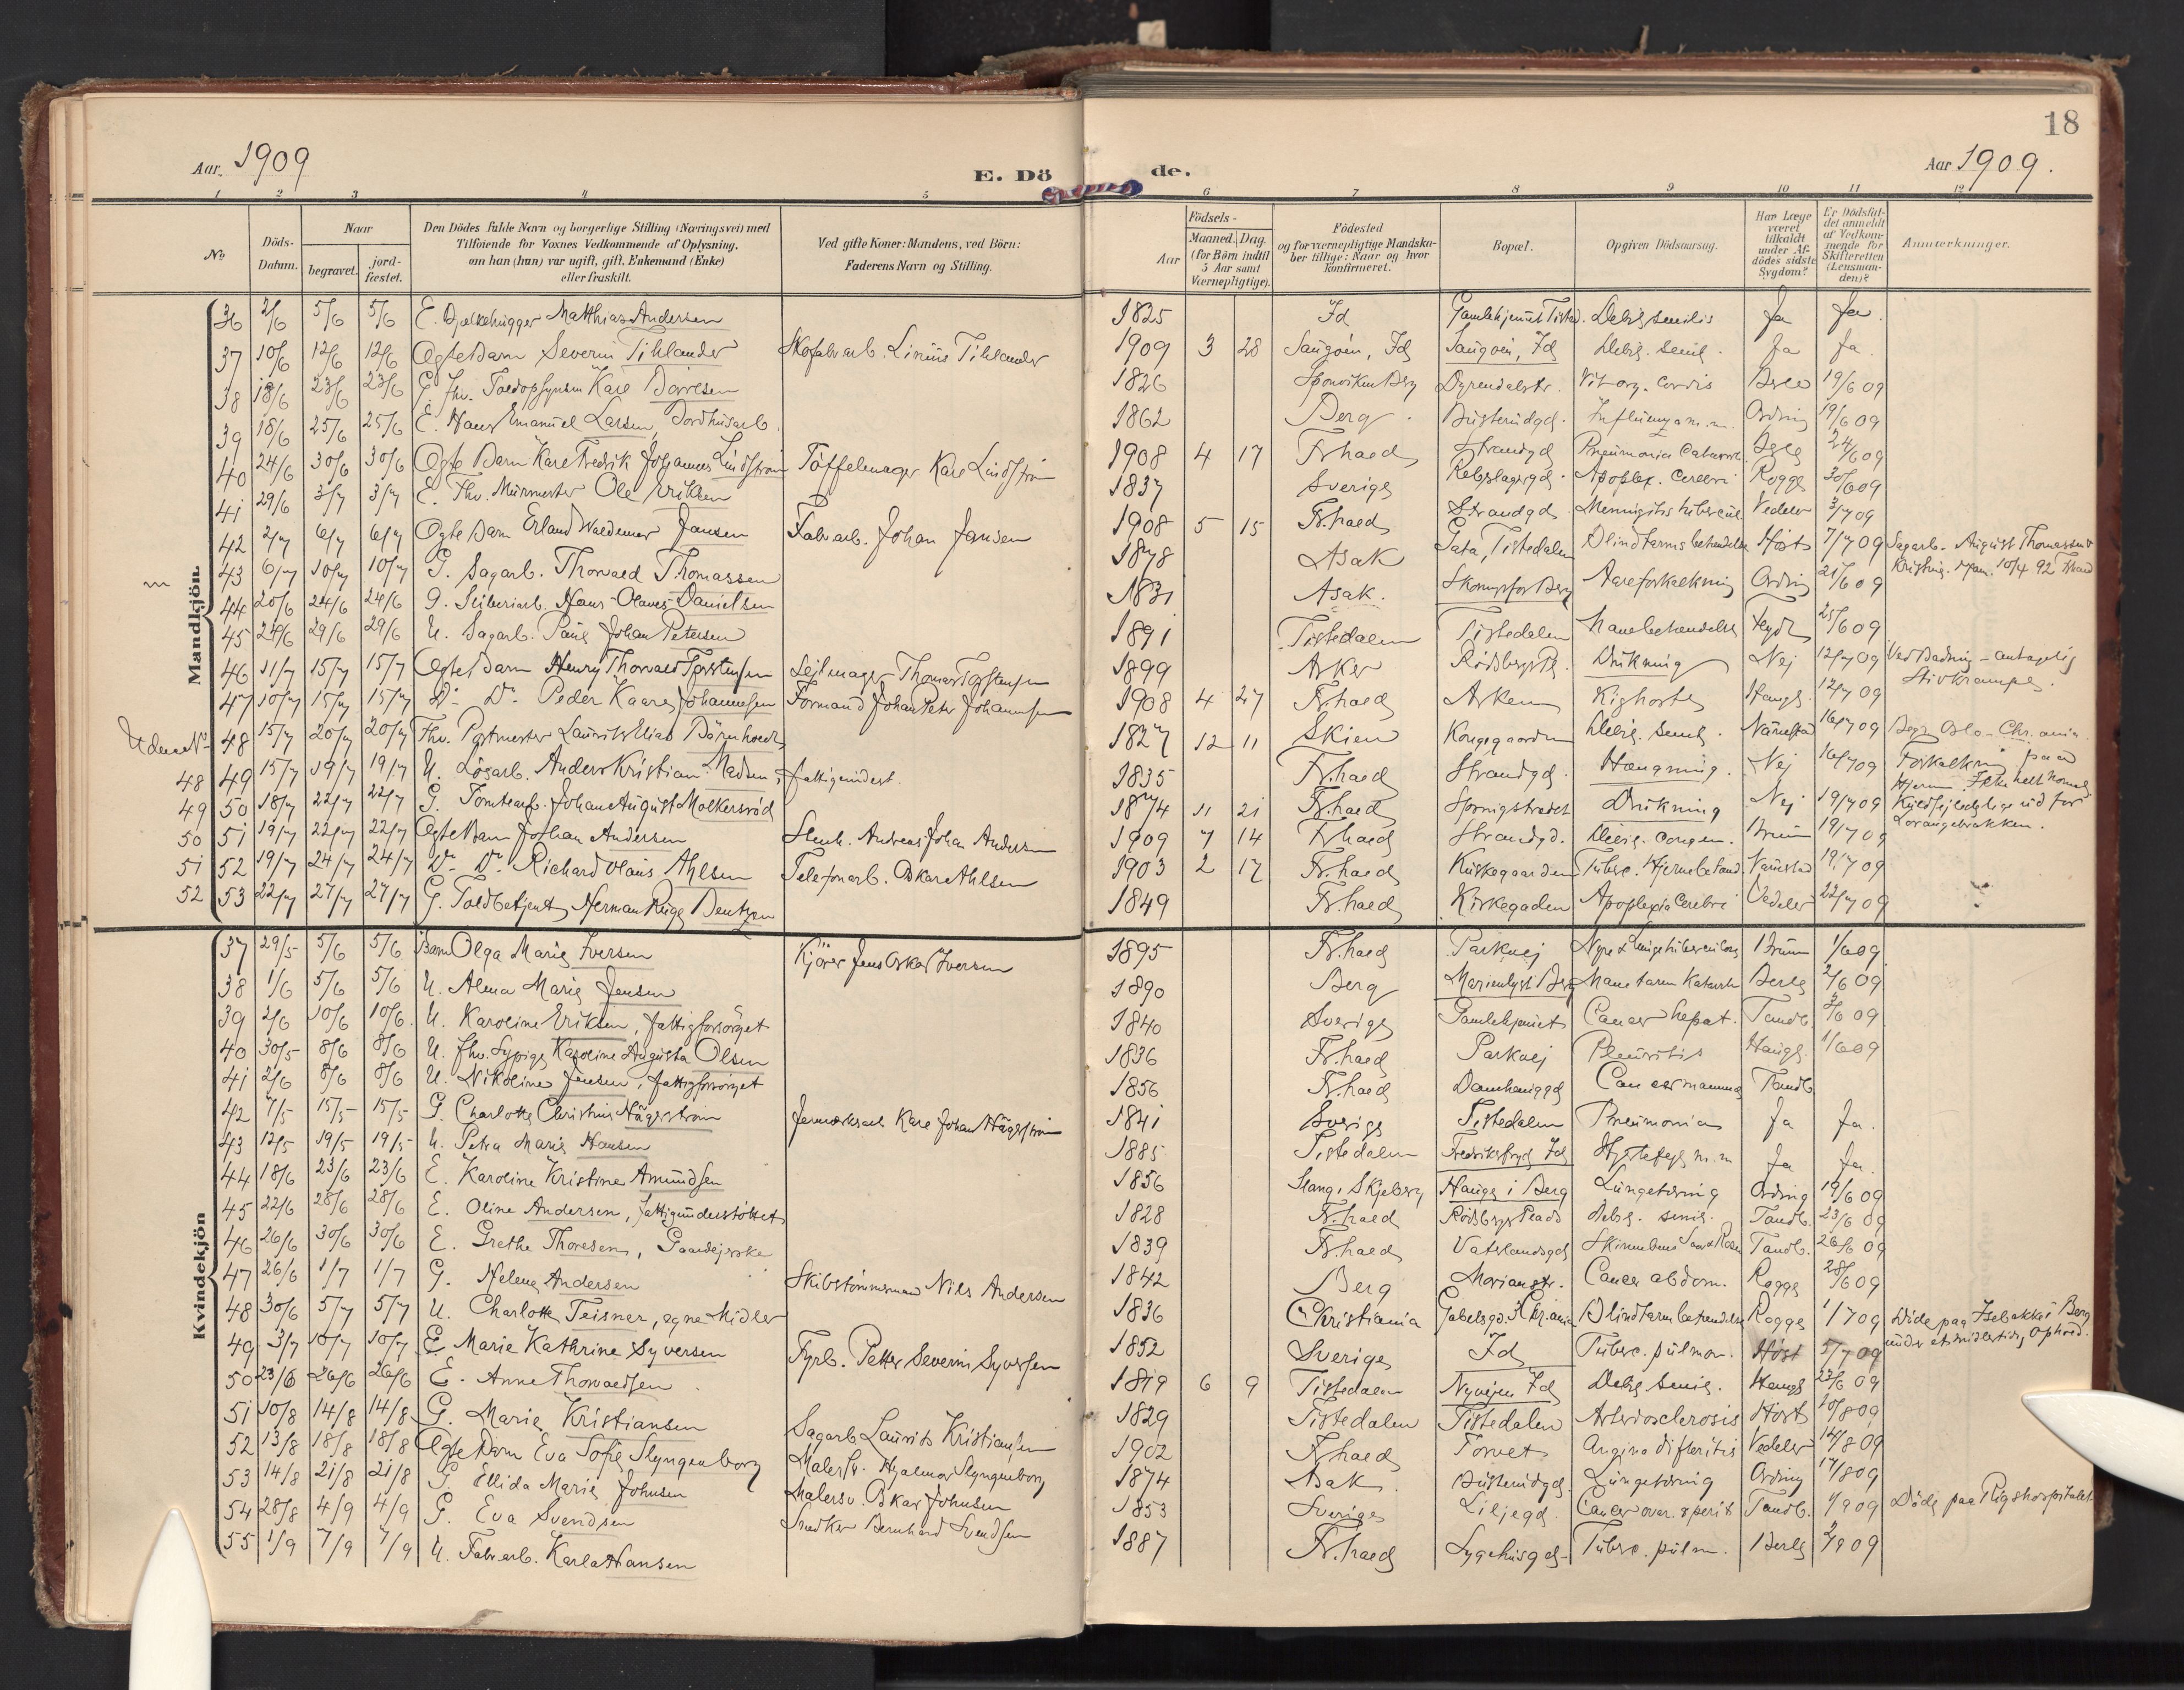 18
Aar 1909
E. Dö de.
Aar 1909.
1 2 3 4 5 6 7 8 9 10 11 12
No
Döds-Datum.
Naar
begravet.
jord-fæstet.
Den Dödes fulde Navn og borgerlige Stilling (Næringsvei) med
Tilföiende for Voxnes Vedkommende af Oplysning,
om han (hun) var ugift, gift, Enkemand (Enke)
eller fraskilt.
Ved gifte Koner: Mandens, ved Börn:
Faderens Navn og Stilling.
Födsels-
Aar
Maaned. Dag.
(for Börn indtil
5 Aar samt
Værnepligtige).
Födested
og for værnepligtige Mandska-
ber tillige: Naar og hvor
konfirmeret.
Bopæl.
Opgiven Dödsaarsag.
Har Læge
været
tilkaldt
under Af-
dödes sidste
Sygdom?
Er Dödsfal-
det anmeldt
af Vedkom-
mende for
Skifteretten
(Lensman-
den)?
Anmærkninger.
Mandkjön.
36 2/6 5/6 5/6 E. Bjelkehugger Matthias Andersen 1825 Id Gamlehjemmet Tisted. Debil. senilis Ja Ja.
37 10/6 12/6 12/6 Ægte Barn Severin Tihlander Skofabarb. Linius Tihlander 1909 3 28 Saugöen, Id Saugöen, Id Debil. Ja Ja
38 18/6 23/6 23/6 G. fhv. Toldopsynsm Karl Börresen 1826 Sponviken Berg Dyrendalstr. Vit. org. Cordis 19/6 09
39 18/6 25/6 25/6 E. Hans Emanuel Larsen, 1862 Berg. Busterudgd. Influenza m.m. Ording 19/6 09
40 24/6 30/6 30/6 Ægte Barn Karl Fredrik Johannes Lindström Töffelmager Karl Lindström 1908 4 17 Fr.hald Strandgd Pneumonia Catarrh. 24/6 09
41 29/6 3/7 3/7 E. Fhv. Murmester Ole Eriksen 1837 Sverige Rebslagergd. Apoplex. Cerebri Rogge 30/6 09
42 2/7 6/7 6/7 Ægte Barn Erland Waldemar Jansen Fabarb. Johan Jansen 1908 5 15 Fr.hald Strandgd Meningitis tubercul. Vedeler 3/7 09
43 6/7 10/7 10/7 G. Sagarb. Thorvald Thomassen 1878 Asak Gata, Tistedalen Blindtarmsbetændelse Höst 7/7 09 Sagarb. August Thomassen
44 20/6 24/6 24/6 G. Sliberiarb. Hans Olaves Danielsen 1831 Asak. Skonningsfos Berg Aareforkalkning Ording 21/6 09
45 24/6 29/6 29/6 U. Sagarb. Paul Johan Petersen 1891 Tistedalen Tistedalen 25/6 09
46 11/7 15/7 15/7 Ægte Barn Henry Thorvald Torstensen Seilmager Thomas Torstensen 1899 Asker Rödsbergs Pl. Drukning Nej 12/7 09 Ved Badning - antagelig
Stivkrampe.
47 10/7 15/7 15/7 Do. Do. Peder Kaare Johannesen Formand Johan Peter Johannesen 1908 4 27 Fr.hald Kighoste Haugl. 12/7 09
Uden No. 48 15/7 20/7 20/7 Fhv. Postmester Laurits Elias Börnholdt 1827 12 11 Skien Kongegaarden Debil. senil. Nannestad 16/7 09 Begr. Oslo - Chr.ania.
48 49 15/7 19/7 19/7 U. Lösarb. Anders Kristian Madsen, fattigunderst. 1835 Fr.hald Strandgd. Hængning. Nej 16/7 09
49 50 18/7 22/7 22/7 G. Tomtearb. Johan August Molkersröd 1874 11 21 Fr.hald Spornigstrædet Drukning Nej 19/7 09
50 51 19/7 22/7 22/7 Ægte Barn Johan Andersen Stenh. Andreas Johan Andersen 1909 7 14 Fr.hald Strandgd. Debil. congen. Bruun 19/7 09
51 52 19/7 24/7 24/7 Do. Do. Richard Olaus Ahlsen Telefonarb. Oskar Ahlsen 1903 2 17 Fr.hald Tuberc. Hjernebetænd. Nannestad 19/7 09
52 53 22/7 27/7 27/7 G. Toldbetjent Herman Ruge Bentzen 1849 Fr.hald Kirkegaden Apoplexia Cerebri Vedeler 22/7 09
Kvindekjön
37 29/5 5/6 5/6 Barn Olga Marie Iversen Kjörer Jens Oskar Iversen 1895 Fr.hald Parkvej Bruun 1/6 09
38 1/6 5/6 5/6 U. Alma Marie Jensen 1890 Berg Marienlyst Berg Mavetarm Katarrh Berle 2/6 09
39 2/6 10/6 10/6. U. Karoline Eriksen, fattigforsörget 1840 Sverige Gamlehjemmet Cancer hepat. Tandb. 3/6 09
40 30/5 8/6 8/6 U. fhv. Sypige Karoline Augusta Olsen 1836 Fr.hald Parkvej Pleuritis Haugl. 1/6 09
41 2/6 8/6 8/6 U. Nikoline Jensen, fattigforsörget 1856 Fr.hald Damhauggd Cancer mamma Tandb.
42 7/5 15/5 15/5 G. Charlotte Christine Hägerström Jernværksarb Karl Johan Hägerström 1841 Sverige Tistedalen Pneumonia Ja Ja.
43 12/5 19/5 19/5 U. Petra Marie Hansen 1885 Tistedalen Fredriksfryd Id Hjertefeil m.m Ja Ja.
44 18/6 23/6 23/6 E. Karoline Kristine Amundsen 1856 Stang i Skjeberg Hauge i Berg Lungetæring Ording 19/6 09
45 22/6 28/6 28/6 E. Oline Andersen, fattigunderstöttet 1828 Fr.hald Rödsbergs Plads debil. senil. Tandb. 23/6 09
46 26/6 30/6 30/6 E. Grethe Thoresen, Gaardejerske 1839 Fr.hald Vaterlandsgd Tandb. 26/6 09
47 26/6 1/7 1/7 G. Helene Andersen Skibstömmermand Nils Andersen 1842 Berg Marianstr. Cancer abdom. Rogge 28/6 09
48 30/6 5/7 5/7 U. Charlotte Teisner, egne Midler 1836 Christiania Gabelsgd. Kr.ania Blindtarmbetændelse Rogge 1/7 09 Döde paa Isebakke i Berg
under et midlertidig Ophold.
49 3/7 10/7 10/7 E Marie Kathrine Syversen Fyrb. Petter Severin Syversen 1852 Sverige Id Tuberc. pulmon. Höst 5/7 09
50 23/6 26/6 26/6 E. Anne Thorvaldsen 1819 6 9 Tistedalen Nyveien Id Debil. senil. Haugl 23/6 09
51 10/8 14/8 14/8 G. Marie Kristiansen Sagarb Laurits Kristiansen 1829 Tistedalen Tistedalen Arteriosclerosis Höst 10/8 09
52 13/8 18/8 18/8 Ægte Barn Eva Sofie Slyngenborg Malersv. Hjalmar Slyngenborg 1902 Fr.hald Torvet Angina difteritis Vedeler 14/8 09
53 14/8 21/8 21/8 G. Ellida Marie Johnsen Malersv. Oskar Johnsen 1874 Asak. Busterudgd. Lungetæring Ording 17/8 09
54 28/8 4/9 4/9 G. Eva Svendsen Snedker Bernhard Svendsen 1853 Sverige Liljegd. Cancer ovar. & perit Tandb. 1/9 09 Döde paa Rigshospitalet
55 1/9 7/9 7/9 U. Fabarb. Karla Hansen 1887 Fr.hald Sygehusgd. Tuberc. pulm. Berle 2/9 09